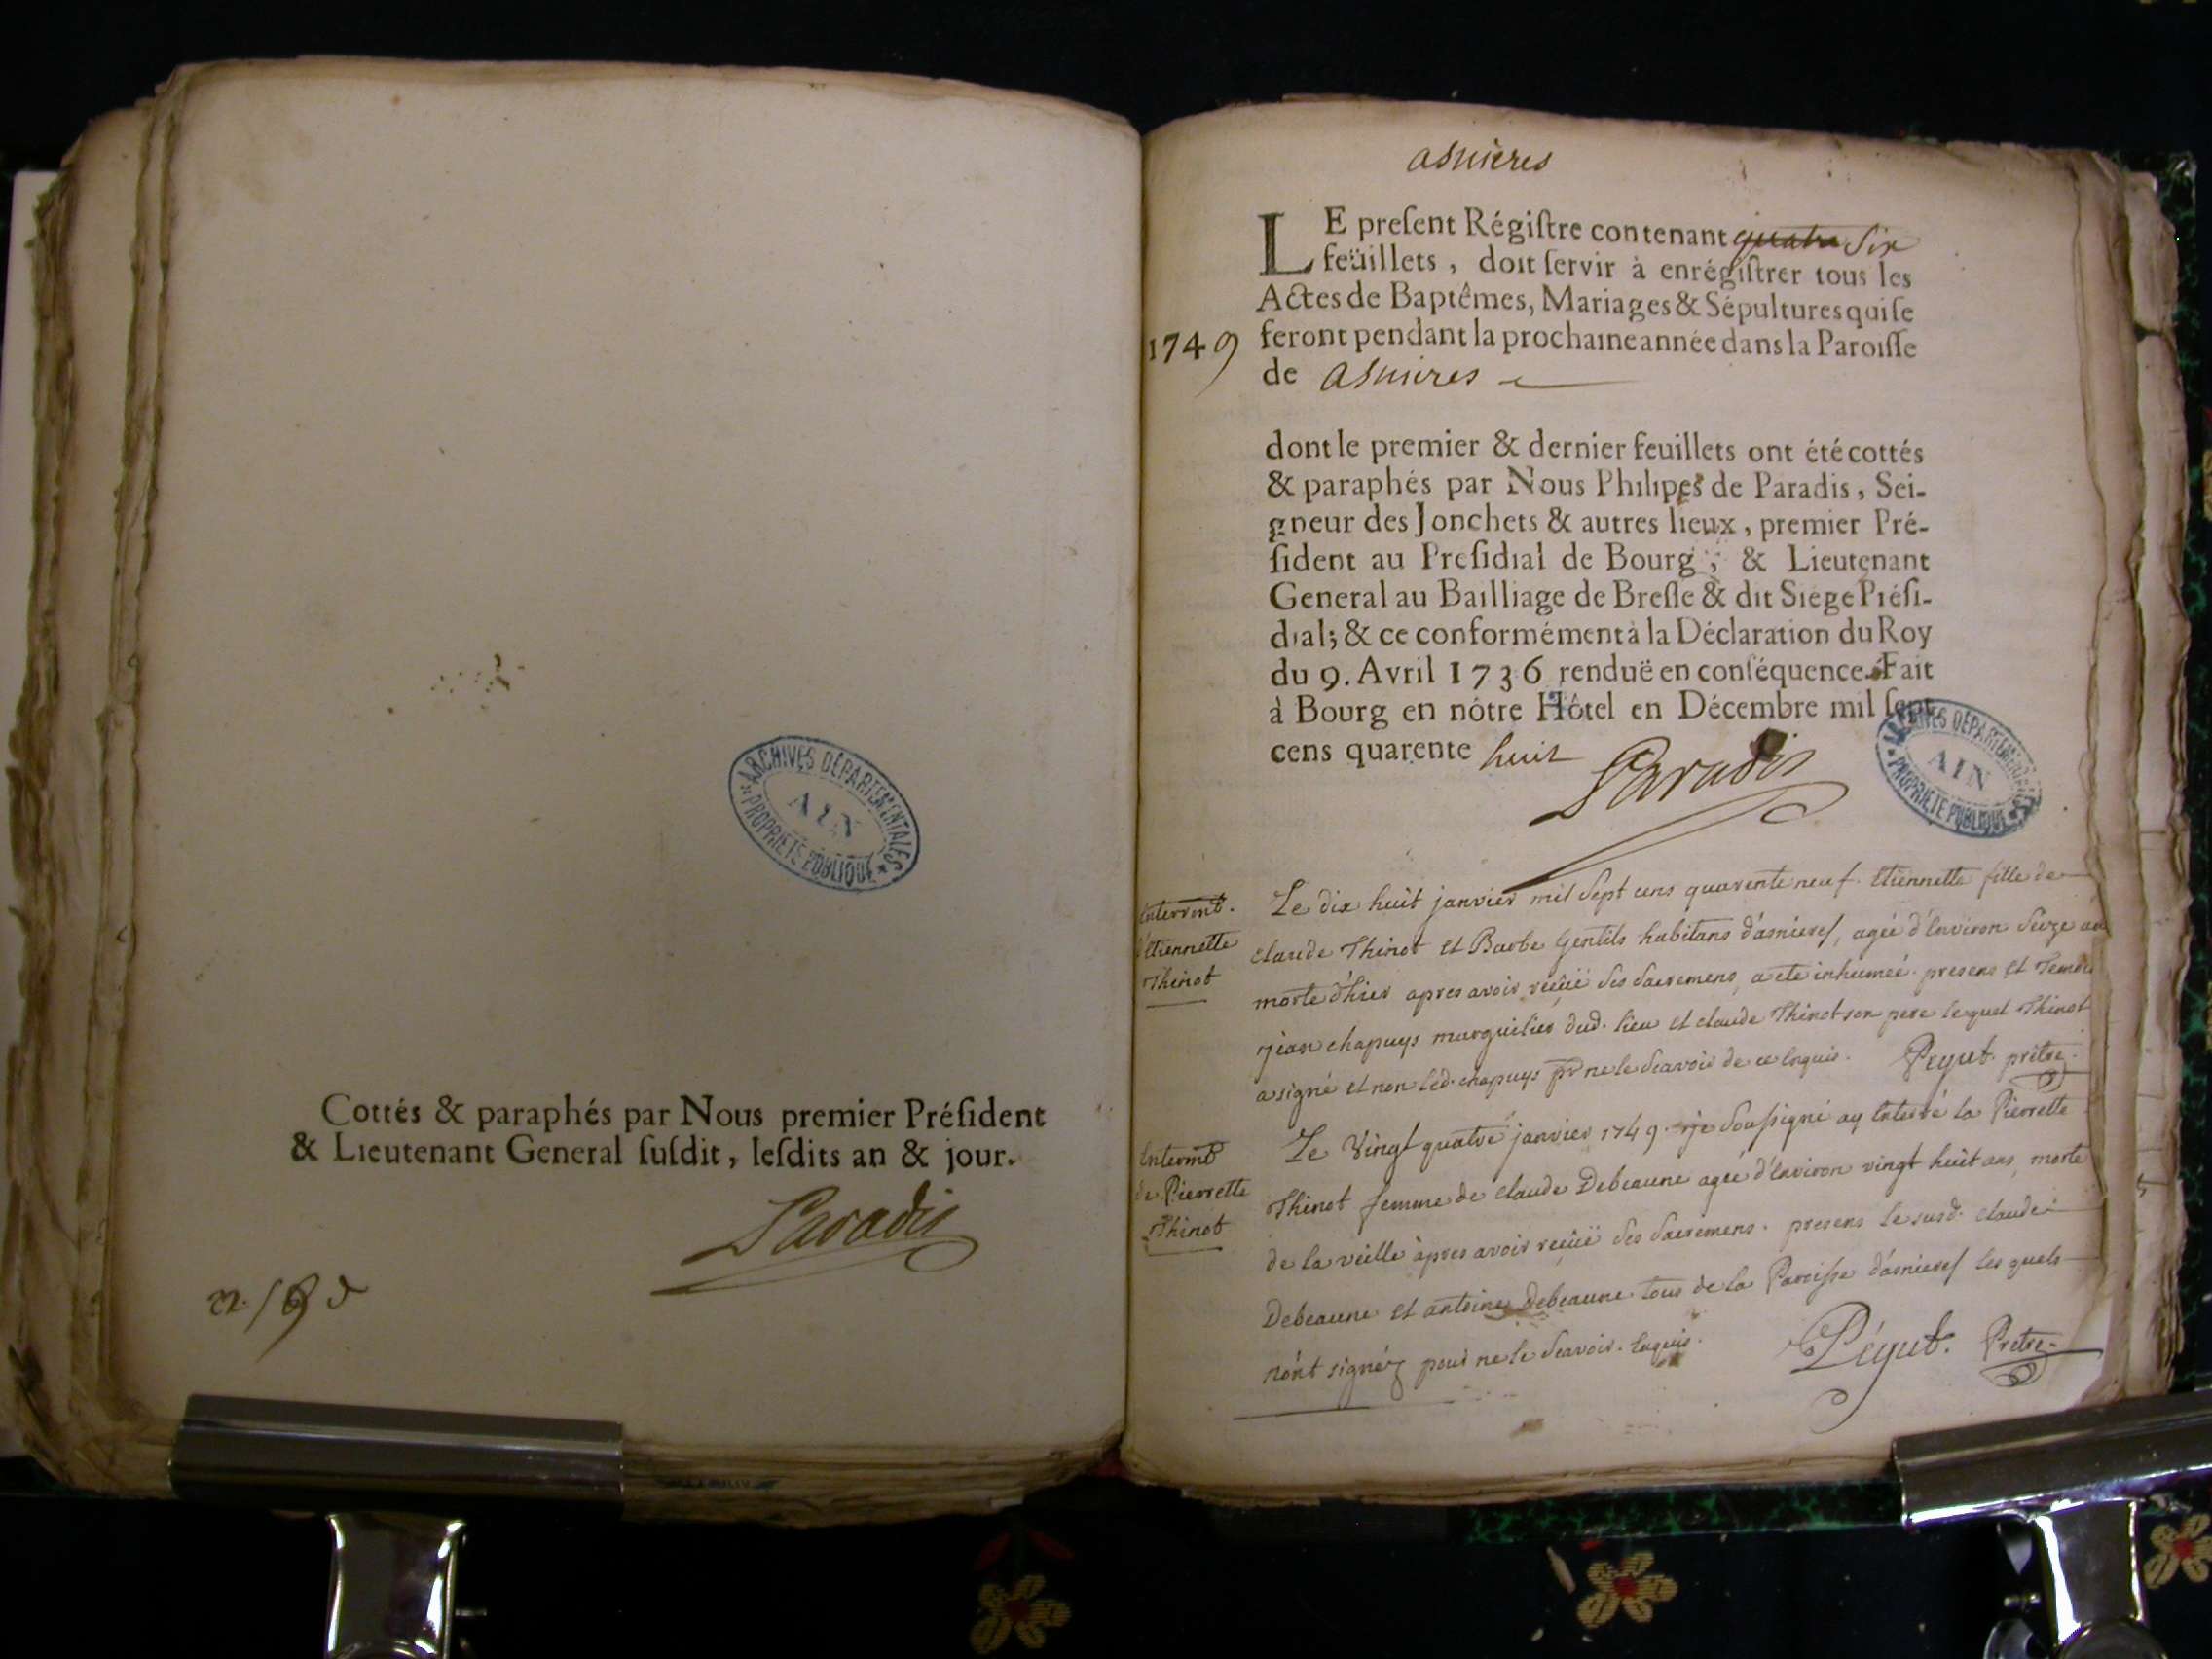 Cottés & paraphés par Nous premier Préſident
& Lieutenant General ſuſdit, leſdits an & jour.
Paradis
ARCHIVES DÉPARTEMENTALES
AIN
PROPRIÉTÉ PUBLIQUE
asnieres
LE preſent Régiſtre contenant quatre Six
feüillets, doit ſervir à enrégiſtrer tous les
Actes de Baptêmes, Mariages & Sépultures qui ſe
1749 feront pendant la prochaine année dans la Paroiſſe
de asnieres
dont le premier & dernier feuillets ont été cottés
& paraphés par Nous Philipes de Paradis, Sei-
gneur des Jonchets & autres lieux, premier Pré-
ſident au Preſidial de Bourg, & Lieutenant
General au Bailliage de Breſſe & dit Siége Préſi-
dial; & ce conformément à la Déclaration du Roy
du 9. Avril 1736 renduë en conſéquence. Fait
à Bourg en nôtre Hôtel en Décembre mil ſept
cens quarente huit
Paradis
ARCHIVES DÉPARTEMENTALES
AIN
PROPRIÉTÉ PUBLIQUE
d'Etiennette
Thinot
Le dix huit janvier mil Sept cens quarente neuf. Etiennette fille de
claude Thinot et Barbe Gentils habitans d'asnieres, agée d'Environ Seize
morte d'hier apres avoir reçüe Ses Sacremens, a ete inhumée. presens et
jean chapuys marguilier dud. lieu et claude Thinot son pere lequel Thinot
a signé et non led. chapuys pr ne le Scavoir de ce Enquis. Peyut. prêtre.
Enterrmt
de Pierrette
Thinot
Le Vingt quatre janvier 1749. je Soussigné ay Enterré la Pierrette
Thinot femme de claude Debeaune agée d'Environ vingt huit ans, morte
de la veille apres avoir reçüe Ses Sacremens. presens le susd. claude
Debeaune et antoine Debeaune tous de la Paroisse d'asnieres les quels
n'ont signéz pour ne le Scavoir. Enquis. Péyut. Prêtre.